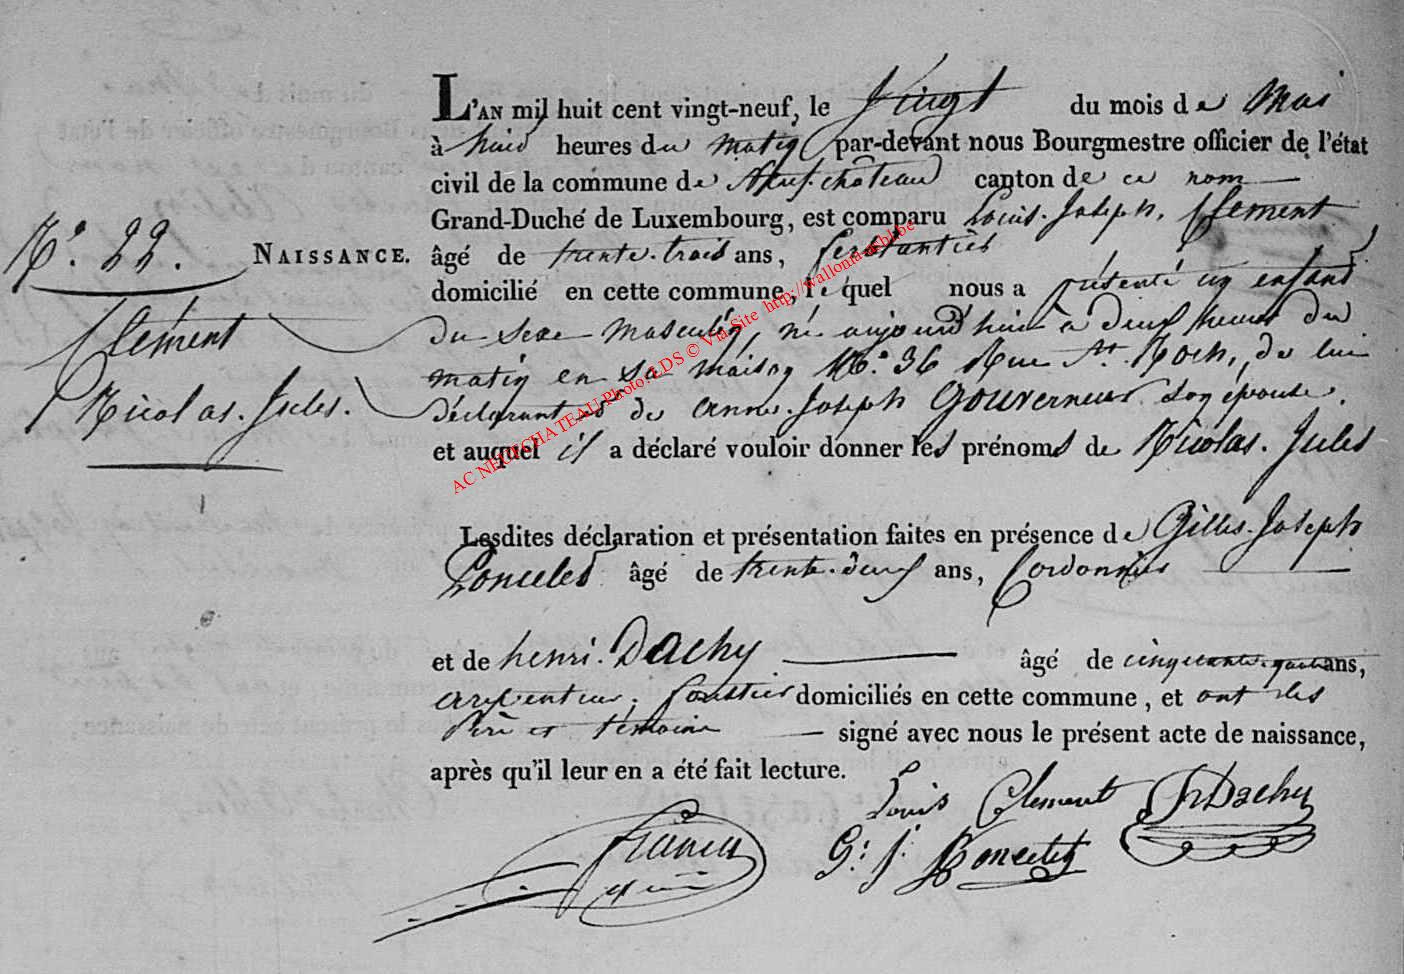 L'AN mil huit cent vingt-neuf, le Vingt du mois de Mai
à huit heures du matin par-devant nous Bourgmestre officier de l'état
civil de la commune de Neufchâteau canton de ce nom
Grand-Duché de Luxembourg, est comparu Louis-Joseph Clement
âgé de trente-trois ans, ferblantier
domicilié en cette commune, lequel nous a présenté un enfant
du sexe masculin, né aujourd'hui à deux heures du
matin en sa maison N.° 36 Rue St. Roch, de lui
déclarant et de anne-Joseph Gouverneur son épouse.
et auquel il a déclaré vouloir donner les prénoms de Nicolas-Jules
N.° 22.
NAISSANCE.
Clement
Nicolas-Jules.
Lesdites déclaration et présentation faites en présence de Gilles-Joseph
Poncelet âgé de trente-deux ans, Cordonnier
et de henri Dachy âgé de cinquante-quatre ans,
arpenteur forestier domiciliés en cette commune, et ont les
Père et témoins signé avec nous le présent acte de naissance,
après qu'il leur en a été fait lecture.
Louis Clement
Dachy
G: J: Poncelet
AC NEUFCHATEAU Photo: LDS © Via Site http://wallonia-bxl.be